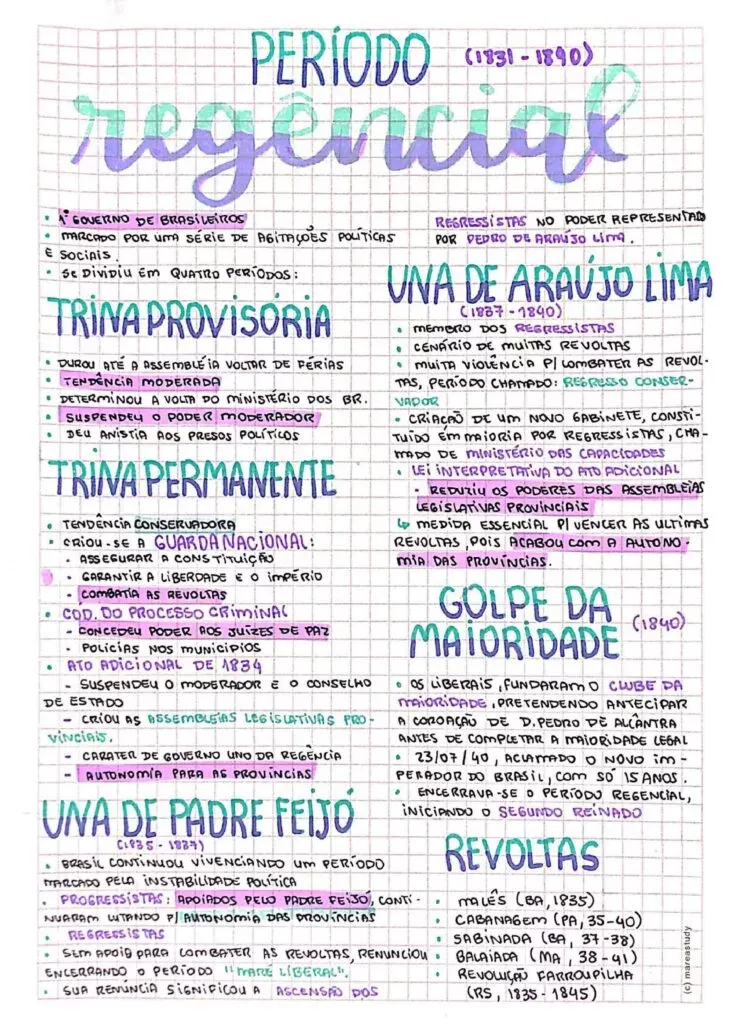 PERÍODO (1831-1890)
regêncial
• 1º GOVERNO DE BRASILEIROS
• MARCADO POR UMA SÉRIE DE AGITAÇÕES POLÍTICAS
E SOCIAIS.
• SE DIVIDIU EM QUATRO PERÍODOS:
TRINA PROVISÓRIA
• DUROU ATÉ A ASSEMBLÉIA VOLTAR DE FÉRIAS
• TENDÊNCIA MODERADA
• DETERMINOU A VOLTA DO MINISTÉRIO DOS BR.
• SUSPENDEU O PODER MODERADOR
• DEU ANISTIA AOS PRESOS POLÍTICOS
TRINA PERMANENTE
• TENDÊNCIA CONSERVADORA
• CRIOU-SE A GUARDA NACIONAL:
• ASSEGURAR A CONSTITUIÇÃO
• GARANTIR A LIBERDADE E O IMPÉRIO
• COMBATIA AS REVOLTAS
• CÓD. DO PROCESSO CRIMINAL
- CONCEDEU PODER AOS JUÍZES DE PAZ
• POLÍCIAS NOS MUNICÍPIOS
• ATO ADICIONAL DE 1834
- SUSPENDEU O MODERADOR E O CONSELHO
DE ESTADO
- CRIOU AS ASSEMBLEIAS LEGISLATIVAS PRO-
VINCIAIS.
- CARATER DE GOVERNO UNO DA REGÊNCIA
- AUTONOMIA PARA AS PROVÍNCIAS
UNA DE PADRE FEIJÓ
(1835-1837)
• BRASIL CONTINUOU VIVENCIANDO UM PERÍODO
MARCADO PELA INSTABILIDADE POLÍTICA
• PROGRESSISTAS: APOIADOS PELO PADRE FEIJÓ, CONTI-
NUARAM LUTANDO P/ AUTONOMIA DAS PROVÍNCIAS
• REGRESSISTAS
• SEM APOIO PARA COMBATER AS REVOLTAS, RENUNCIOU
ENCERRANDO O PERÍODO "MARÉ LIBERAL".
• SUA RENÚNCIA SIGNIFICOU A ASCENSÃO DOS
REGRESSISTAS NO PODER REPRESENTADO
POR PEDRO DE ARAÚJO LIMA.
UNA DE ARAÚJO LIMA
(1837-1840)
• MEMBRO DOS REGRESSISTAS
• CENÁRIO DE MUITAS REVOLTAS
• MUITA VIOLÊNCIA P/ COMBATER AS REVOL-
TAS, PERÍODO CHAMADO: REGRESSO CONSER-
VADOR
• CRIAÇÃO DE UM NOVO GABINETE, CONSTI-
TUÍDO EM MAIORIA POR REGRESSISTAS, CHA-
MADO DE MINISTÉRIO DAS CAPACIDADES
• LEI INTERPRETATIVA DO ATO ADICIONAL
- REDUZIU OS PODERES DAS ASSEMBLEIAS
LEGISLATIVAS PROVINCIAIS
↳ MEDIDA ESSENCIAL P/ VENCER AS ULTIMAS
REVOLTAS, POIS ACABOU COM A AUTONO-
MIA DAS PROVÍNCIAS.
GOLPE DA
MAIORIDADE (1840)
• OS LIBERAIS, FUNDARAM O CLUBE DA
MAIORIDADE, PRETENDENDO ANTECIPAR
A COROAÇÃO DE D. PEDRO DE ALCÂNTRA
ANTES DE COMPLETAR A MAIORIDADE LEGAL
• 23/07/40, ACLAMADO O NOVO IM-
PERADOR DO BRASIL, COM SÓ 15 ANOS.
• ENCERRAVA-SE O PERÍODO REGENCIAL,
INICIANDO O SEGUNDO REINADO
REVOLTAS
• MALÊS (BA, 1835)
• CABANAGEM (PA, 35-40)
• SABINADA (BA, 37-38)
• BALAIADA (MA, 38-41)
• REVOLUÇÃO FARROUPILHA
(RS, 1835-1845)
(c) mareastudy